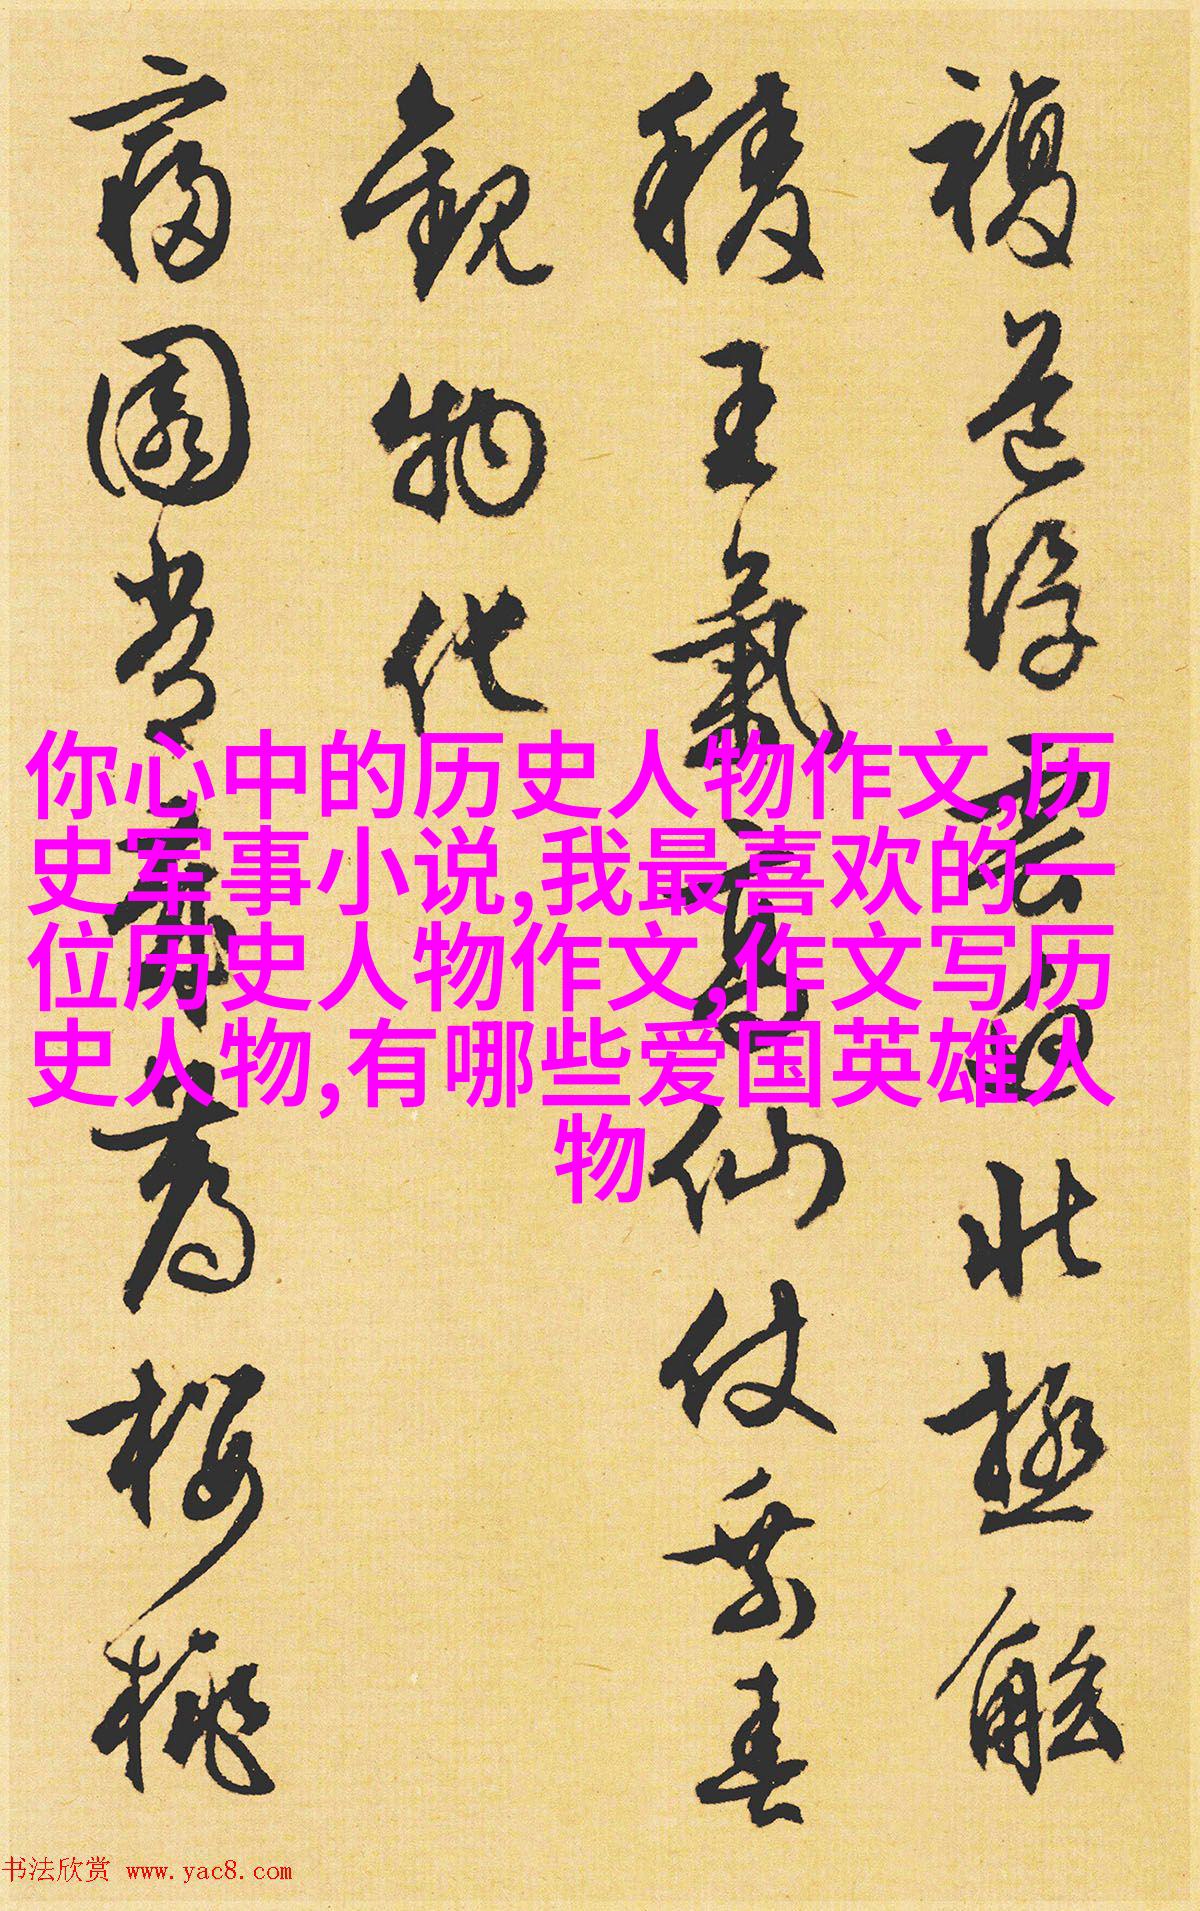 複道浮雲迥北極觚
稜王氣高仙仗乘春
觀物化
寢園常歲薦櫻桃
你心中的历史人物作文,历
史军事小说,我最喜欢的一
位历史人物作文,作文写历
史人物,有哪些爱国英雄人
物
书法欣赏 www.yac8.com